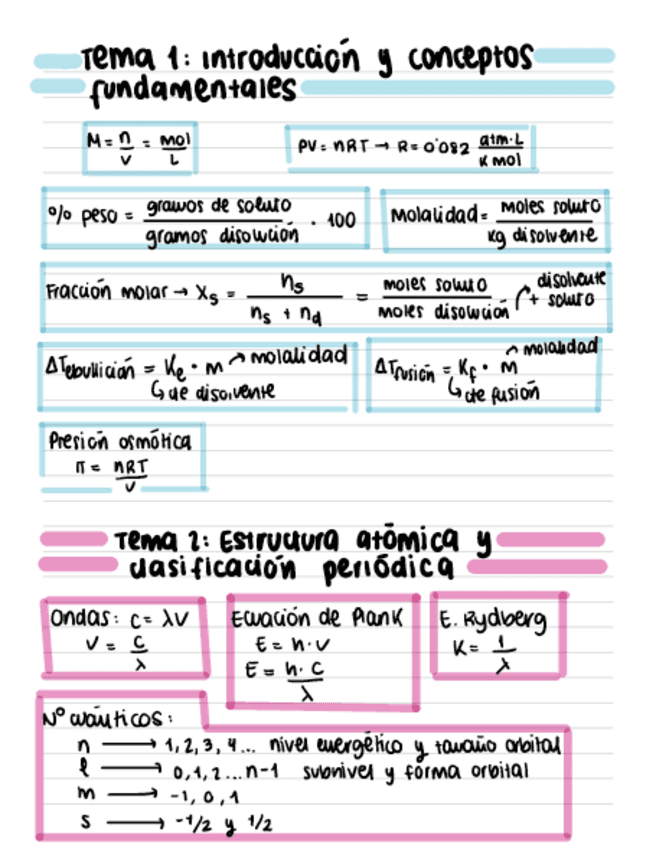 Tema 1: introducción y conceptos
fundamentales
M = n/V = mol/L
PV = nRT → R = 0'082 atm·L/K mol
% peso = gramos de soluto/gramos disolución · 100
Molalidad = moles soluto/kg disolvente
Fracción molar → Xs = ns/ns + nd = moles soluto/moles disolución → disolvente + soluto
ΔTebullición = Ke · m → molalidad
↳ de disolvente
ΔTfusión = Kf · m → molalidad
↳ cte fusión
Presión osmótica
π = nRT/V
Tema 2: Estructura atómica y
clasificación periódica
Ondas: c = λν
ν = c/λ
Ecuación de Plank
E = h·ν
E = h·c/λ
E. Rydberg
K = 1/λ
Nº cuánticos:
n → 1, 2, 3, 4... nivel energético y tamaño orbital
l → 0, 1, 2...n-1 subnivel y forma orbital
m → -1, 0, 1
s → -1/2 y 1/2